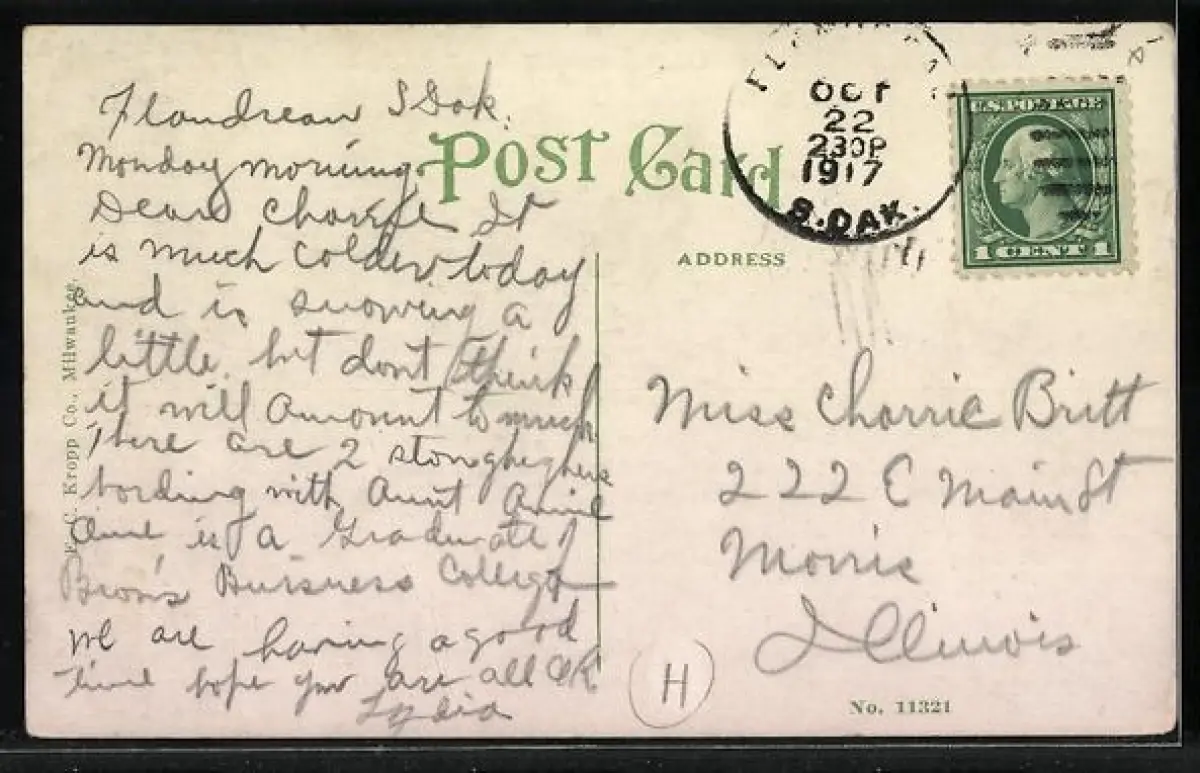 Flandreau S Dak.
Monday morning.
Dear Chorrie It
is much colder today
and is snowing a
little. but dont think
it will amount to much
There are 2 stenoghephers
bording with Aunt Annie
One is a Graduate of
Brown's Buisness College
we are having a good
time hope you are all OK
Lydia
E. C. Kropp Co., Milwaukee.
Post Card
ADDRESS
OCT
22
230P
1917
S. DAK.
U.S. POSTAGE
1 CENT 1
Miss Chorrie Britt
222 E Main St
Morris
Illinois
H
No. 11321